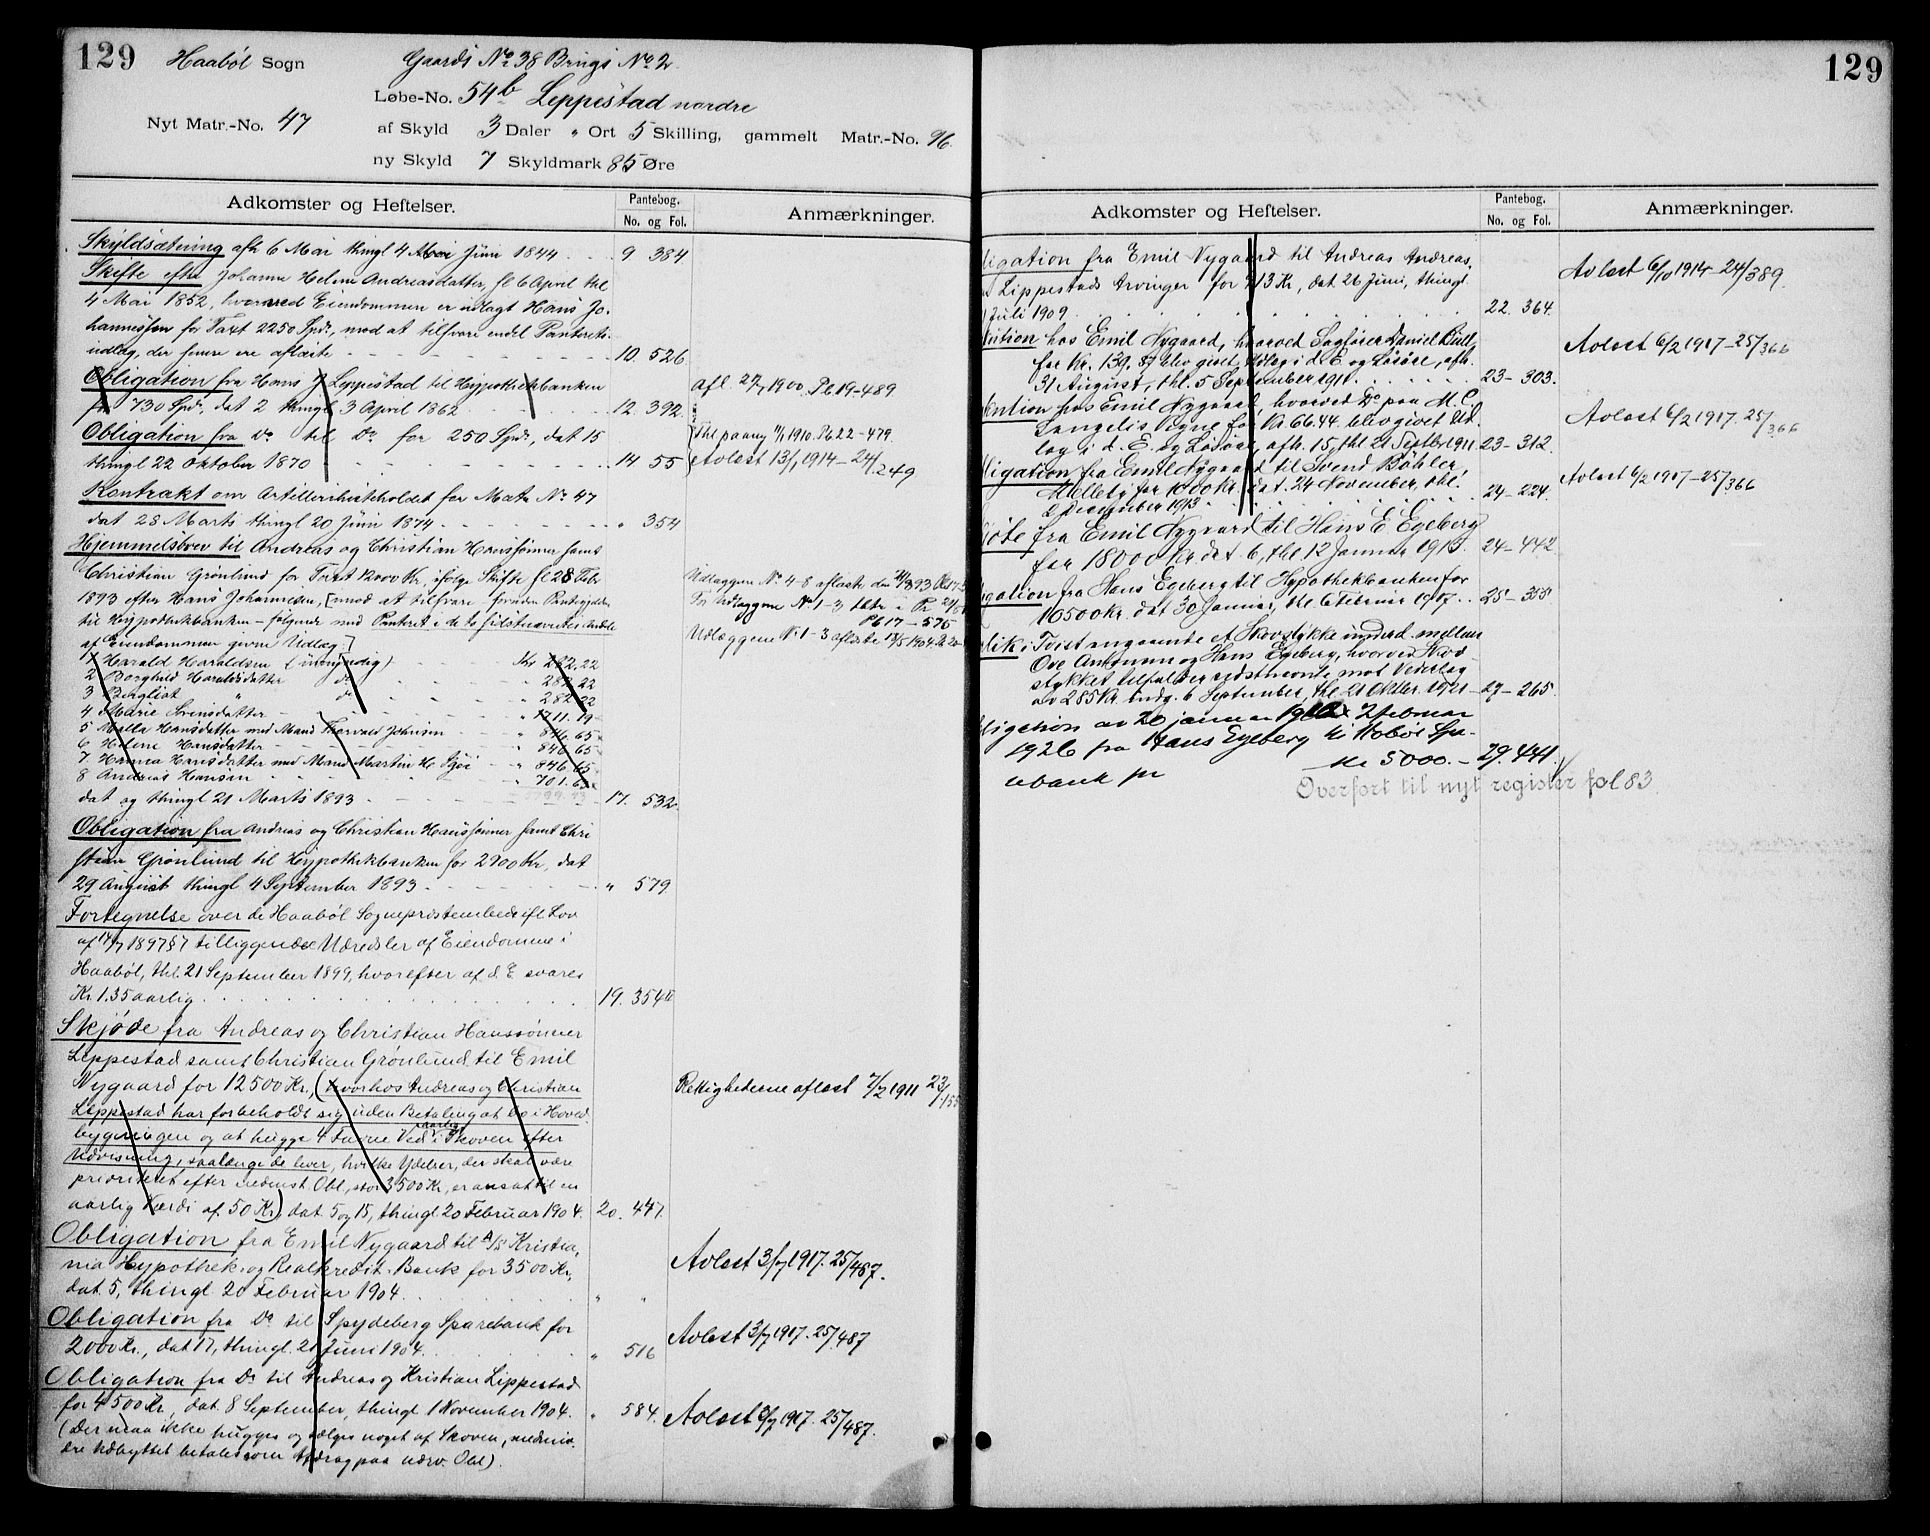 129 Haabøl Sogn Gaards No 38 Brugs No 2.
Løbe-No. 54b Leppestad nordre
Nyt Matr.-No. 47 af Skyld 3 Daler " Ort 5 Skilling, gammelt Matr.-No. 96.
ny Skyld 7 Skyldmark 85 Øre
Adkomster og Heftelser. Pantebog. No. og Fol. Anmærkninger.
Skyldsætning afh 6 Mai thingl 4 Juni 1844 9 384
Skifte efter Johanne Helene Andreasdatter, sl 6 April thl
4 Mai 1852, hvorved Eiendommen er udlagt Hans Jo-
hannessen for Taxt 2250 Spd, mod at tilsvare endel Panterets-
udlæg, der senere ere aflæste 10. 526
Obligation fra Hans J Leppestad til Hypothekbanken afl. 27/7 1900. Pb 19-489
for 730 Spd, dat 2 thingl 3 April 1862 12. 392.
Obligation fra Do til Do for 250 Spd, dat 15 Thl paany 11/1 1910. Pb 22-479.
thingl 22 Oktober 1870 14 55 Avlæst 13/1 1914 - 24/249
Kontrakt om Artillerihestholdet for Matr No 47
dat 28 Marts thingl 20 Juni 1874 " 354
Hjemmelsbrev til Andreas og Christian Hanssønner samt
Christian Grønlund for Taxt 12000 Kr, ifølge Skifte sl 28 Febr
1893 efter Hans Johannesen, [mod at tilsvare foruden Pantegjelden
til Hypothekbanken - følgende med Panteret i de to sidstnævntes
af Eiendommen givne Udlæg]
Udlæggene No 4-8 aflæste den
For Udlæggene No 1-3
Pb 17-575
Udlæggene No 1-3 aflæste 13/5 1904
1 Harald Haraldsen (umyndig) Kr 282,22
2 Borghild Haraldsdatter do " 282,22
3 Bergliot " do " 282,22
4 Marie Svensdatter " 1711.19
5 Mella Hansdatter med Mand Thorvald Johnsen " 846.65
6 Helene Hansdatter " 846 65
7. Hanna Hansdatter med Mand Martin H " 846.65
8 Andreas Hansen " 701.63
dat og thingl 21 Marts 1893 17. 532.
Obligation fra Andreas og Christian Hanssønner samt Chri
stian Grønlund til Hypothekbanken for 2900 Kr, dat
29 August thingl 4 September 1893 " 579
Fortegnelse over de Haabøl Sognepræstembede ifl Lov
af 14/7 1897 § 7 tilliggende Uredsler af Eiendomme i
Haabøl, thl. 21 September 1899, hvorefter af d. E. svares
Kr 1.35 aarlig 19. 354
Skjøde fra Andreas og Christian Hanssønner
Leppestad samt Christian Grønlund til Emil
Nygaard for 12500 Kr., (hvorhos Andreas og Christian Rettighederne aflæst 7/2 1911 23/155
Leppestad har forbeholdt sig uden Betaling at bo i Hoved-
bygningen og at hugge 4 Favne Ved aarlig i Skoven efter
Udvisning, saalænge de lever, hvilke Ydelser, der skal være
prioriteret efter nedenst. Obl., stor 3500 Kr, er ansat til en
aarlig Værdi af 50 Kr) dat. 5 og 15, thingl. 20 Februar 1904. 20. 447.
Obligation fra Emil Nygaard til A/S Kristia-
nia Hypothek- og Realkredit-Bank for 3500 Kr, Avlæst 3/7 1917. 25/487.
dat. 5, thingl. 20 Februar 1904. " "
Obligation fra Do til Spydeberg Sparebank for
2000 Kr., dat 17, thingl. 21 Juni 1904. " 516 Avlæst 3/7 1917. 25/487
Obligation fra Do til Andreas og Kristian Lippestad
for 4500 Kr, dat. 8 September, thingl. 1 November 1904. " 584. Avlæst 3/7 1917. 25/487.
(Der maa ikke hugges og sælges noget af Skoven, medmin-
dre Udbyttet betales som Afdrag paa nærv. Obl).
129
Adkomster og Heftelser. Pantebog. No. og Fol. Anmærkninger.
ligation fra Emil Nygaard til Andreas Andreas.
Lippestads Arvinger for 713 Kr, dat. 26 Juni, thingl. Avlæst 6/10 1914 - 24/389.
Juli 1909 22. 364.
kution hos Emil Nygaard, hvorved Sagfører Daniel Bull
for Kr. 139.87 blev givet Udlæg i d. E. og Løsøre, afh. Avlæst 6/2 1917 - 25/366
31 August, thl. 5 September 1911. 23 - 303.
kution hos Emil Nygaard, hvorved Do paa M. C.
Langelis Vegne for Kr 66.44 blev givet Ud- Avlæst 6/2 1917. 25/366
læg i d. E. og Løsøre, afh. 15, thl. 21 Septbr 1911 23 - 312.
ligation fra Emil Nygaard til Svend Bøhler,
for 1000 Kr. dat. 24 November, thl. Avlæst 6/2 1917 - 25/366
December 1913 24 - 224.
jøte fra Emil Nygaard til Hans E Egeberg
for 18000 Kr. dat 6, thl 12 Januar 1915. 24 - 442
igation fra Hans Egeberg til Hypothekbanken for
10500 Kr. dat. 30 Januar, thl. 6 Februar 1917. 25 - 355
lik i Tvist angaaende et Skovstykke indgaat mellem
Ove Andersen og Hans Egeberg, hvorved Skov-
stykket tilfalder sidstnevnte mot Vederlag
av 285 Kr. indg. 6 September, thl 21 Oktbr. 1921 27 - 265.
ligation av 20 januar 2 februar
1926 fra Hans Egeberg til Hobøl Spa-
rebank for kr 5000. - 29. 441.
Overført til nyt register fol 83.